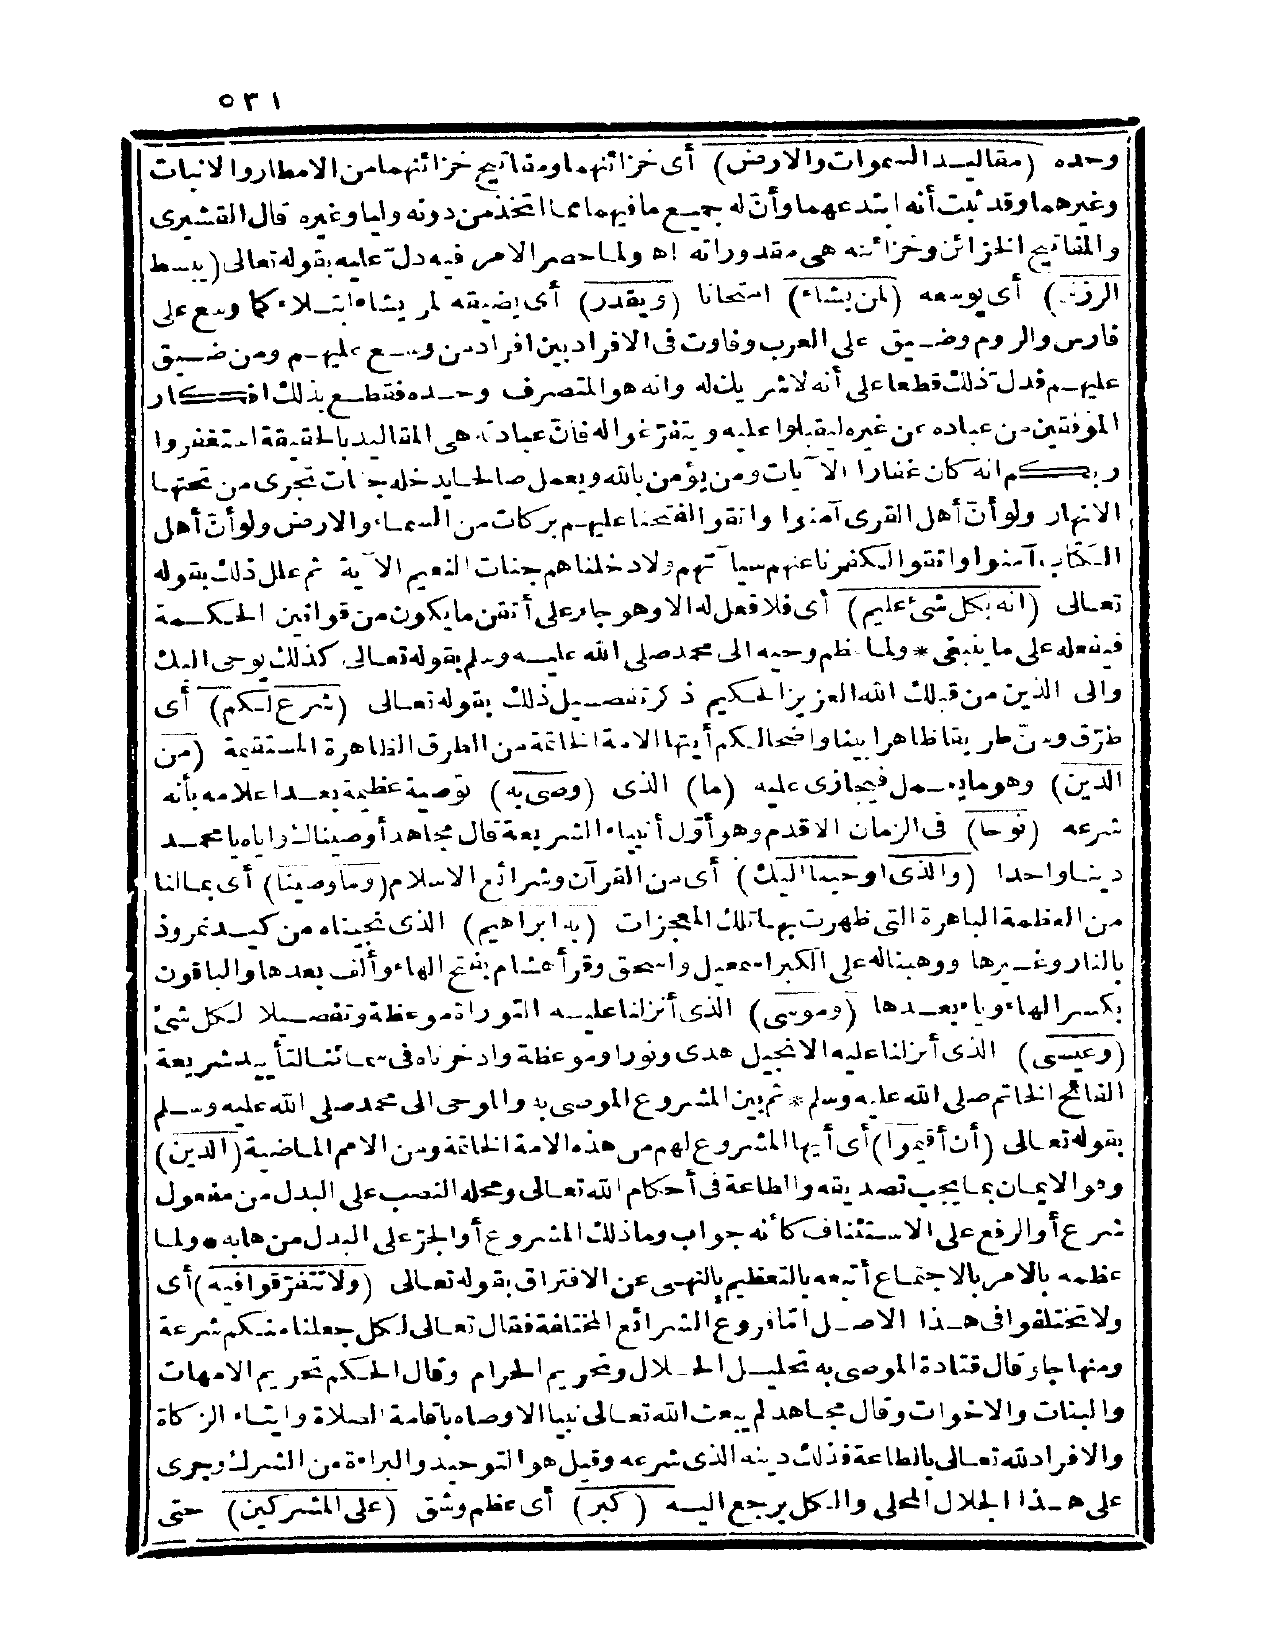 ٥٣١
وحده (مقاليد السموات والارض) أى خزائنهما ومفاتيح خزائنهما من الامطار والانبات
وغيرهما وقد ثبت أنه ابتدعهما وأنّ له جميع ما فيهما مما اتخذ من دونه وليا وغيره قال القشيرى
والمفاتيح الخزائن وخزائنه هى مقدوراته اه ولما حصر الامر فيه دلّ عليه بقوله تعالى (يبسط
الرزق) أى يوسعه (لمن يشاء) امتحانا (ويقدر) أى يضيقه لمن يشاء ابتلاء كما وسع على
فارس والروم وضيق على العرب وفاوت فى الافراد بين افراد من وسع عليهم ومن ضيق
عليهم فدل ذلك قطعا على أنه لاشريك له وانه هو المتصرف وحده فقطع بذلك افكار
الموفقين من عباده عن غيره ليقبلوا عليه ويتفرّغوا له فانّ عبادته هى المقاليد بالحقيقة استغفروا
ربكم انه كان غفارا الآيات ومن يؤمن بالله ويعمل صالحا يدخله جنات تجرى من تحتها
الانهار ولو أنّ أهل القرى آمنوا واتقوا لفتحنا عليهم بركات من السماء والارض ولو أنّ أهل
الكتاب آمنوا واتقوا لكفرنا عنهم سيآتهم ولادخلناهم جنات النعيم الآية ثم علل ذلك بقوله
تعالى (انه بكل شئ عليم) أى فلا فعل له الا وهو جار على أتقن ما يكون من قوانين الحكمة
فيفعله على ما ينبغى * ولما عظم وحيه الى محمد صلى الله عليه وسلم بقوله تعالى كذلك يوحى اليك
والى الذين من قبلك الله العزيز الحكيم ذكر تفصيل ذلك بقوله تعالى (شرع لكم) أى
طرّق وسنّ طريقا ظاهرا بينا واضحا لكم أيتها الامة الخاتمة من الطرق الظاهرة المستقيمة (من
الدين) وهو ما يعمل فيجازى عليه (ما) الذى (وصى به) توصية عظيمة بعد اعلامه بأنه
شرعه (نوحا) فى الزمان الاقدم وهو أوّل أنبياء الشريعة قال مجاهد أوصيناك واياه يا محمد
دينا واحدا (والذى اوحينا اليك) أى من القرآن وشرائع الاسلام (وما وصينا) أى بما لنا
من العظمة الباهرة التى ظهرت بها تلك المعجزات (به ابراهيم) الذى نجيناه من كيد نمروذ
بالنار وغيرها ووهبنا له على الكبر اسمعيل واسحق وقرأ هشام بفتح الهاء وألف بعدها والباقون
بكسر الهاء وياء بعدها (وموسى) الذى أنزلنا عليه التوراة موعظة وتفصيلا لكل شئ
(وعيسى) الذى أنزلنا عليه الانجيل هدى ونورا وموعظة وادخرناه فى سمائنا لتأييد شريعة
الفاتح الخاتم صلى الله عليه وسلم * ثم بين المشروع الموصى به والموحى الى محمد صلى الله عليه وسلم
بقوله تعالى (أن أقيموا) أى أيها المشروع لهم من هذه الامة الخاتمة ومن الامم الماضية (الدين)
وهو الايمان بما يجب تصديقه والطاعة فى أحكام الله تعالى ومحله النصب على البدل من مفعول
شرع أو الرفع على الاستئناف كأنه جواب وما ذلك المشروع أو الجرّ على البدل من هابه * ولما
عظمه بالامر بالاجتماع أتبعه بالتعظيم بالنهى عن الافتراق بقوله تعالى (ولا تتفرّقوا فيه) أى
ولا تختلفوا فى هذا الاصل امّا فروع الشرائع المختلفة فقال تعالى لكل جعلنا منكم شرعة
ومنهاجا وقال قتادة الموصى به تحليل الحلال وتحريم الحرام وقال الحكم تحريم الامهات
والبنات والاخوات وقال مجاهد لم يبعث الله تعالى نبيا الا وصاه باقامة الصلاة وايتاء الزكاة
والافراد لله تعالى بالطاعة فذلك دينه الذى شرعه وقيل هو التوحيد والبراءة من الشرك وجرى
على هذا الجلال المحلى والكل يرجع اليه (كبر) أى عظم وشق (على المشركين) حتى